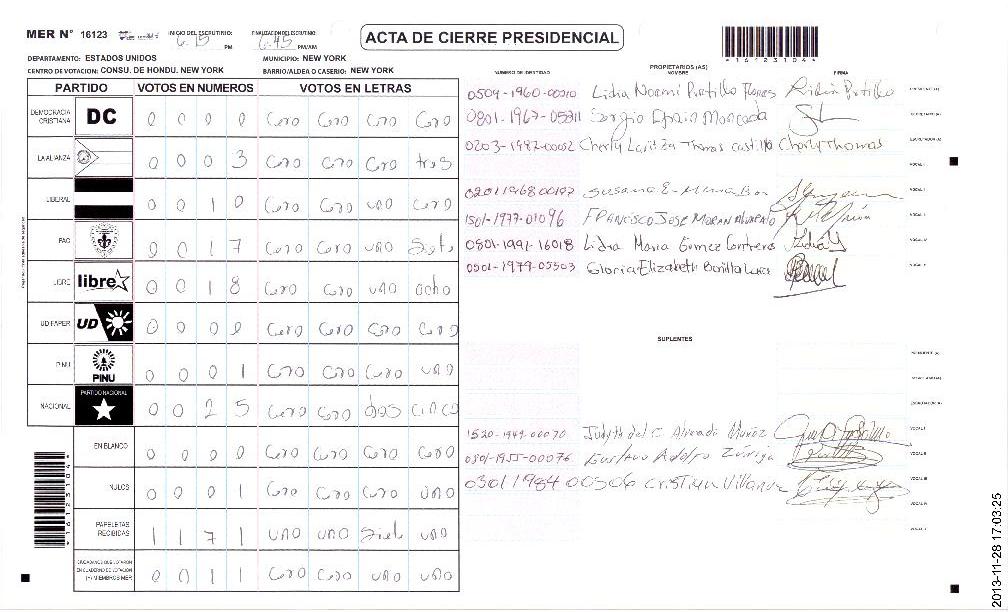 MER N° 16123
INICIO DEL ESCRUTINIO: 6:15 PM
FINALIZACION DEL ESCRUTINIO: 6:45 PM/AM
ACTA DE CIERRE PRESIDENCIAL
*16123104*
DEPARTAMENTO: ESTADOS UNIDOS
MUNICIPIO: NEW YORK
CENTRO DE VOTACION: CONSU. DE HONDU. NEW YORK
BARRIO/ALDEA O CASERIO: NEW YORK
PARTIDO VOTOS EN NUMEROS VOTOS EN LETRAS
DEMOCRACIA CRISTIANA DC 0 0 0 0 Cero Cero Cero Cero
LA ALIANZA 0 0 0 3 Cero Cero Cero tres
LIBERAL 0 0 1 0 Cero Cero uno Cero
PAC 0 0 1 7 Cero Cero uno Siete
LIBRE libre 0 0 1 8 Cero Cero uno ocho
UD FAPER UD 0 0 0 0 Cero Cero Cero Cero
PINU PINU 0 0 0 1 Cero Cero Cero uno
NACIONAL PARTIDO NACIONAL 0 0 2 5 Cero Cero dos cinco
EN BLANCO 0 0 0 0 Cero Cero Cero Cero
NULOS 0 0 0 1 Cero Cero Cero uno
PAPELETAS RECIBIDAS 1 1 7 1 uno uno Siete uno
CIUDADANOS QUE VOTARON EN CUADERNO DE VOTACION (+) MIEMBROS MER 0 0 1 1 Cero Cero uno uno
*16123104*
PROPIETARIOS (AS)
NUMERO DE IDENTIDAD NOMBRE FIRMA
Lidia Noemi Portillo Flores
0801-1967-05811 Sergio Efrain Moncada
0203-1987-0002 Cherly Laritza Thomas Castillo Cherly Thomas
0201196800197
1501-1977-01096 FRANCISCO JOSE MORAN
0801-1991-16018 Lidia Maria Gomez Contreras
0501-1979-05503 Gloria Elizabeth Bonilla
SUPLENTES
1520-1949-00070 Judyth del C. Alvarado Muñoz
0501-1955-00076 Gustavo Adolfo Zúniga
0301 1984 00506 Cristian Villanu
2013-11-28 17:03:25